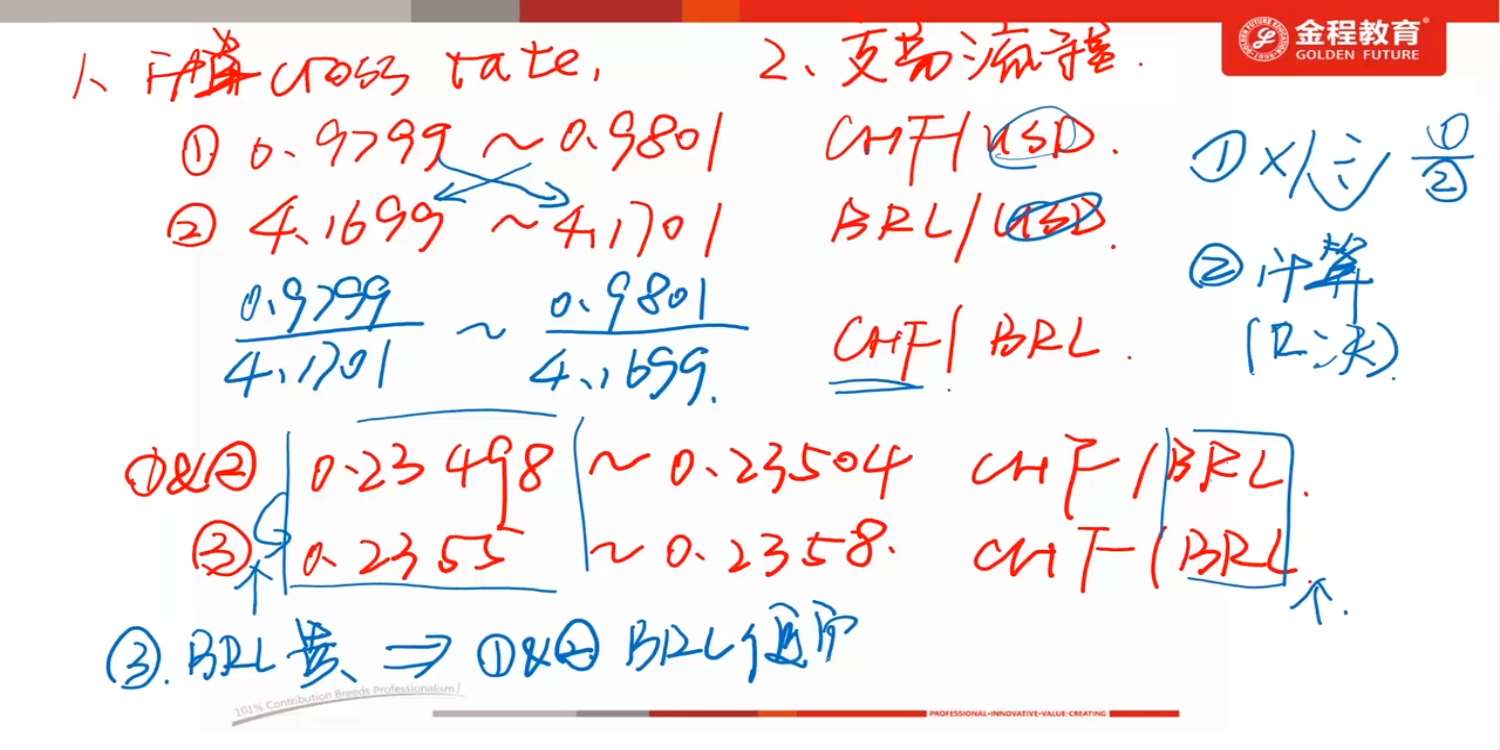 金程教育
GOLDEN FUTURE
1、计算 cross rate,
2、交易流程.
① 0.9799 ~ 0.9801 CHF/USD.
② 4.1699 ~ 4.1701 BRL/USD.
0.9799/4.1701 ~ 0.9801/4.1699. CHF/BRL.
① ×/(÷) ①/②
② 计算
①&② 0.23498 ~ 0.23504 CHF/BRL.
③ 0.2355 ~ 0.2358. CHF/BRL.
③. BRL贵 ⇒ ①&② BRL便宜
101% Contribution Breeds Professionalism!
PROFESSIONAL•INNOVATIVE•VALUE-CREATING